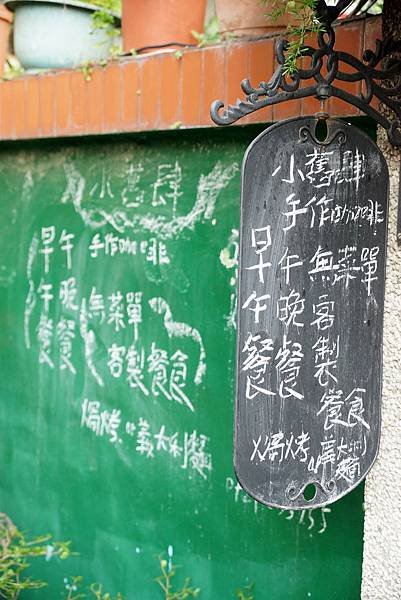 小舊肆
手作咖啡
早午餐
午晚餐
無菜單
客製餐食
焗烤.義大利麵
小舊肆
手作咖啡
早午餐
午晚餐
無菜單
客製
餐食
焗烤.義大利
麵